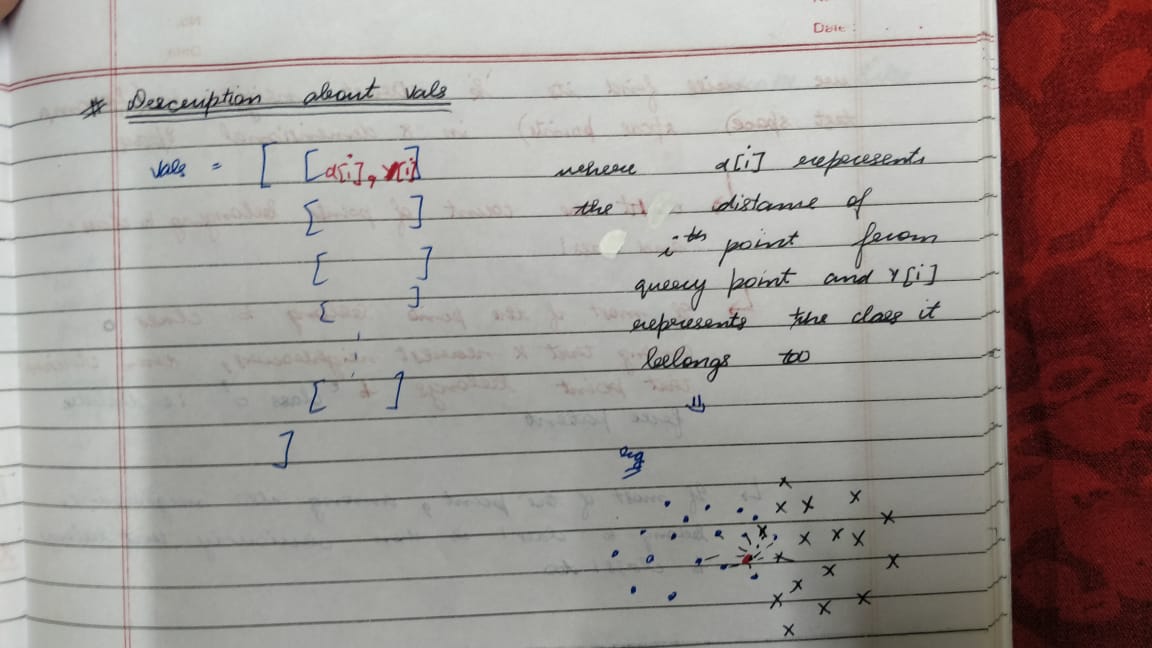 Date :
# Description about vals
vals = [ [d[i], Y[i]] where d[i] represents
[ ] the distance of
[ ] ith point from
[ ] query point and Y[i]
represents the class it
[ ] belongs too
]
eg